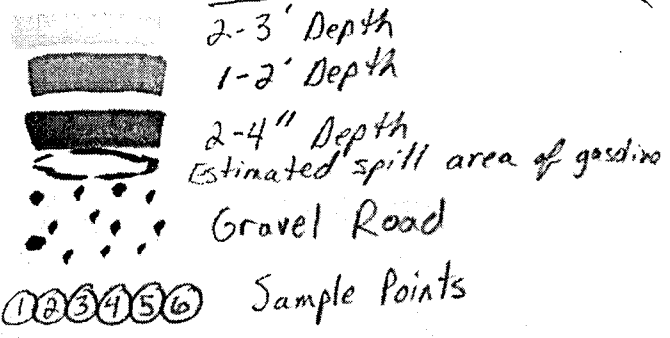 2-3' Depth
1-2' Depth
2-4" Depth
Estimated spill area of gasoline
Gravel Road
1 2 3 4 5 6 Sample Points